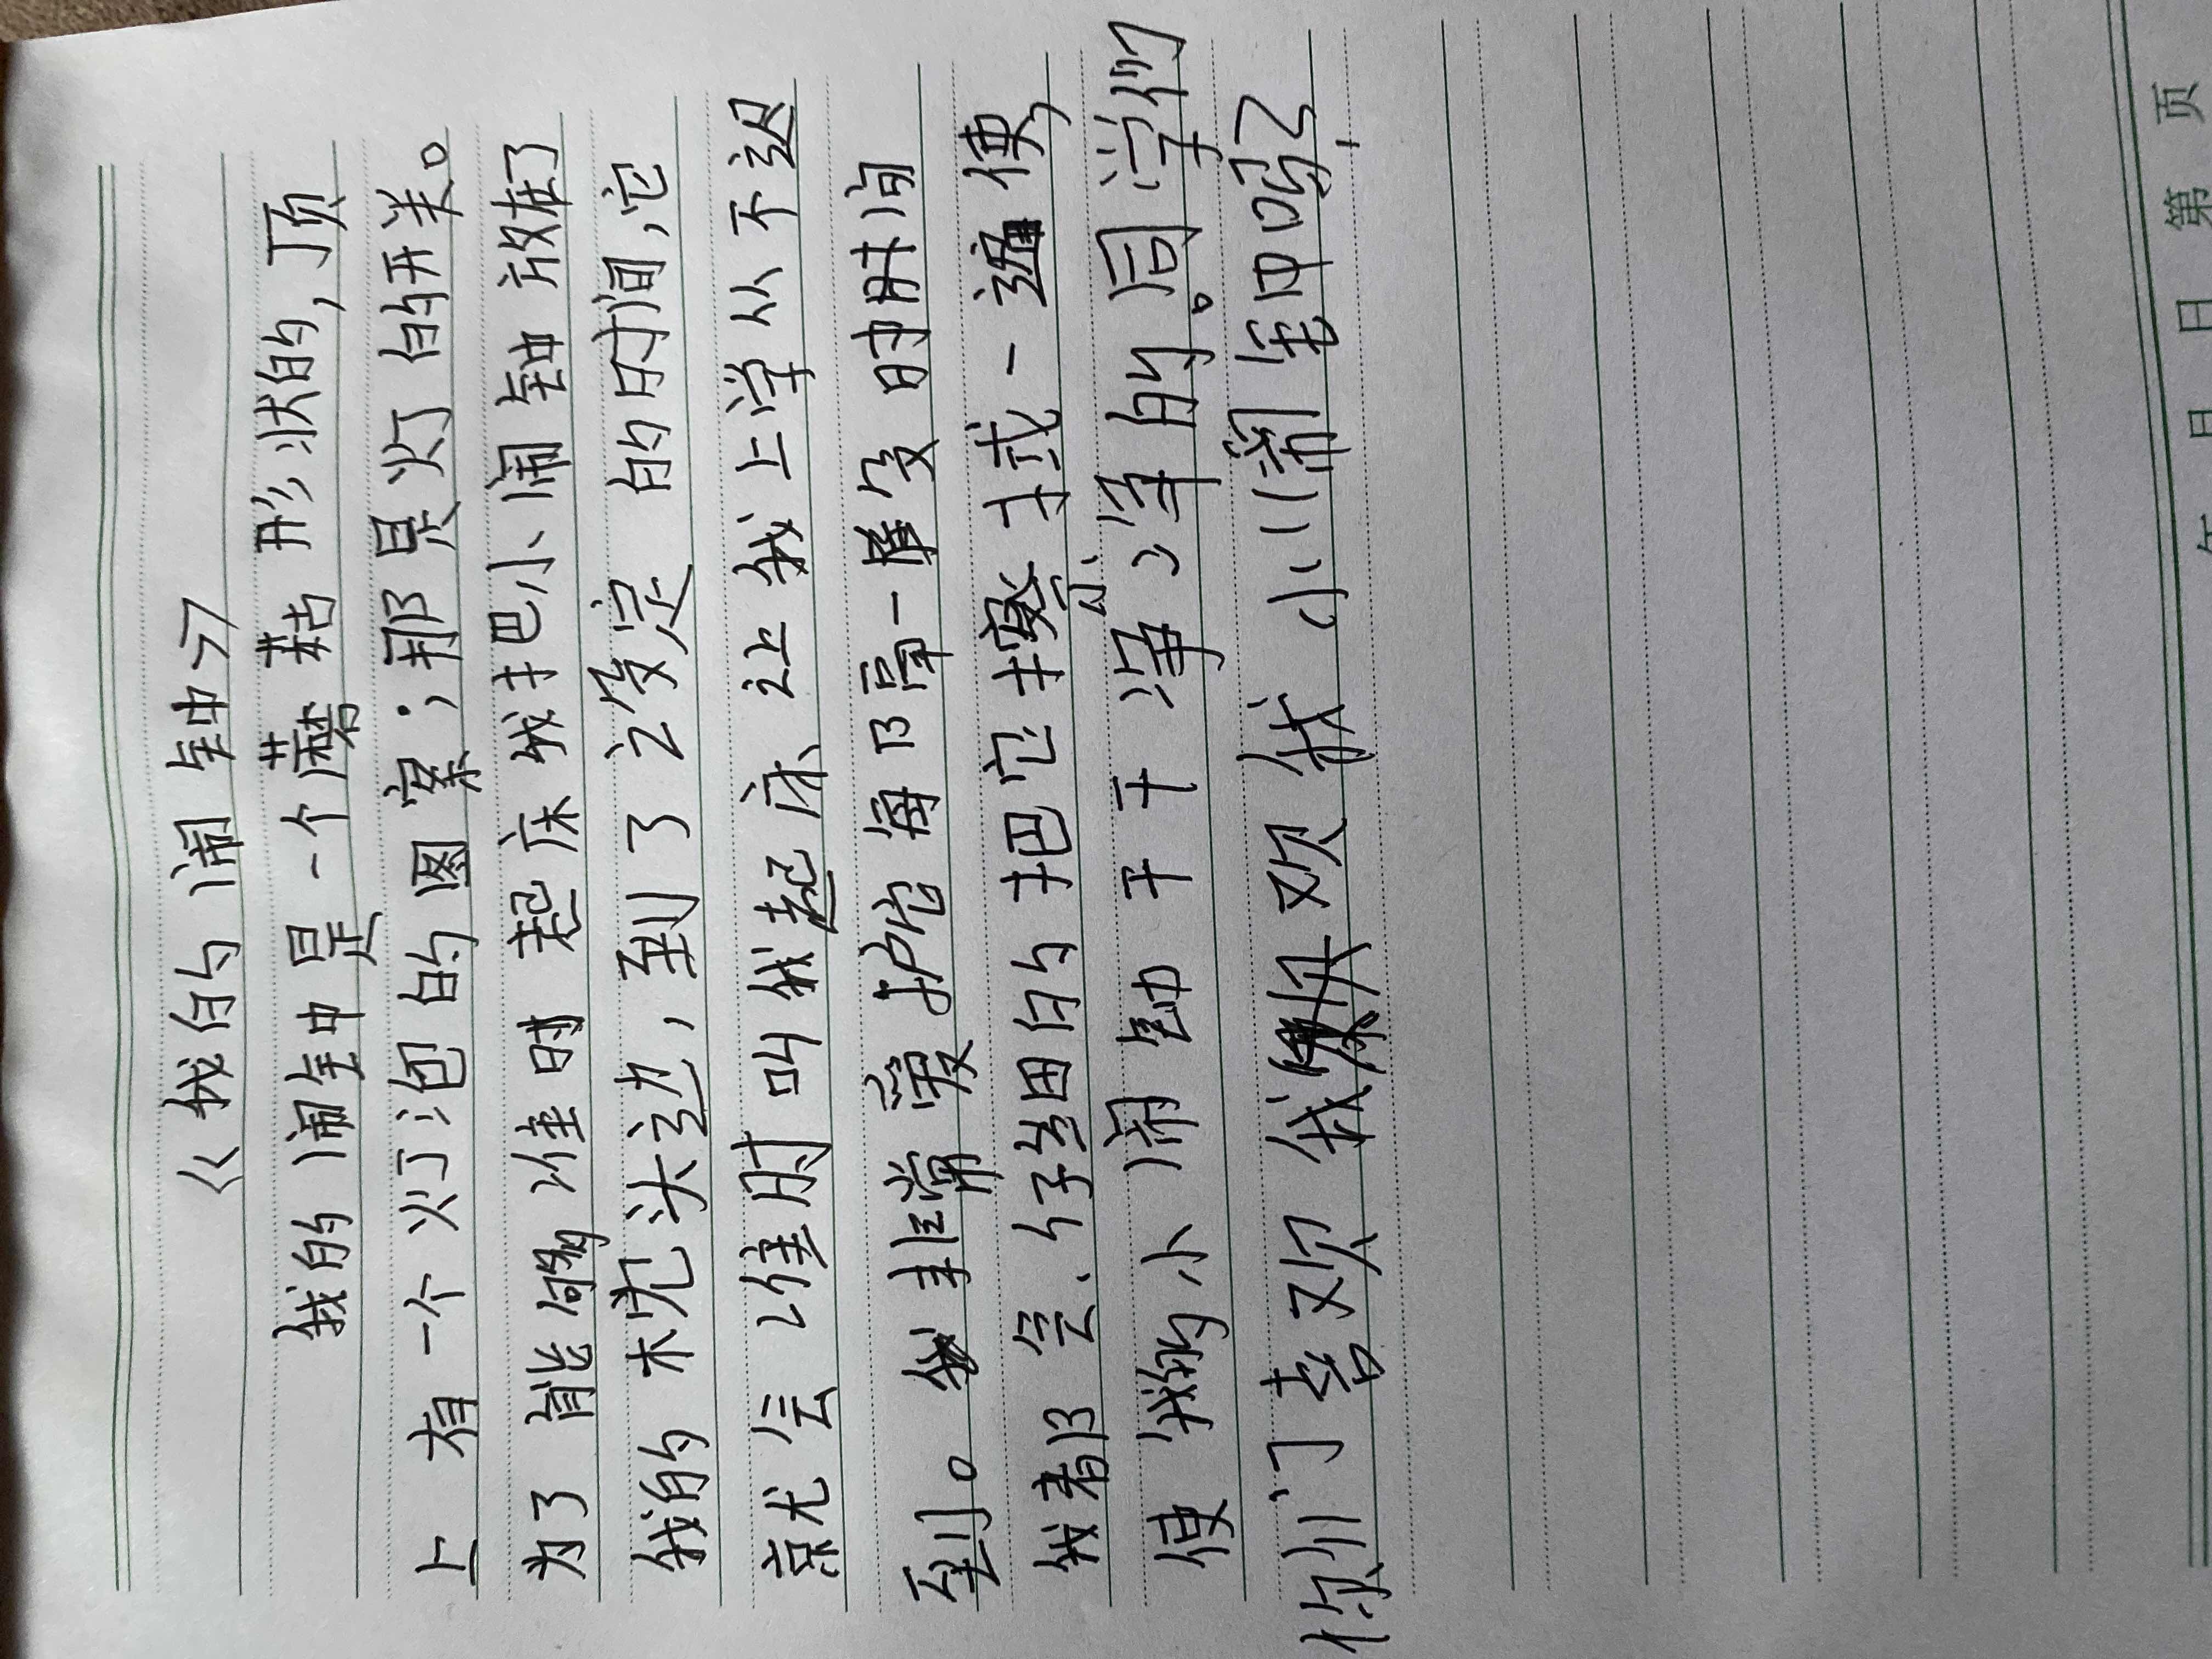 《我的闹钟》
我的闹钟是一个蘑菇形状的，顶
上有一个灯泡的图案；那是灯的开关。
为了能够准时起床我把小闹钟放在了
我的枕头边，到了设定的时间，它
就会准时叫我起床、让我上学从不迟
到。我非常爱护它每隔一段时间
我都会、仔细的把它擦拭一遍使，
使我的小闹钟干干净净的。同学们
你们喜欢我 欢我小闹钟吗？
年 月 日 第 页